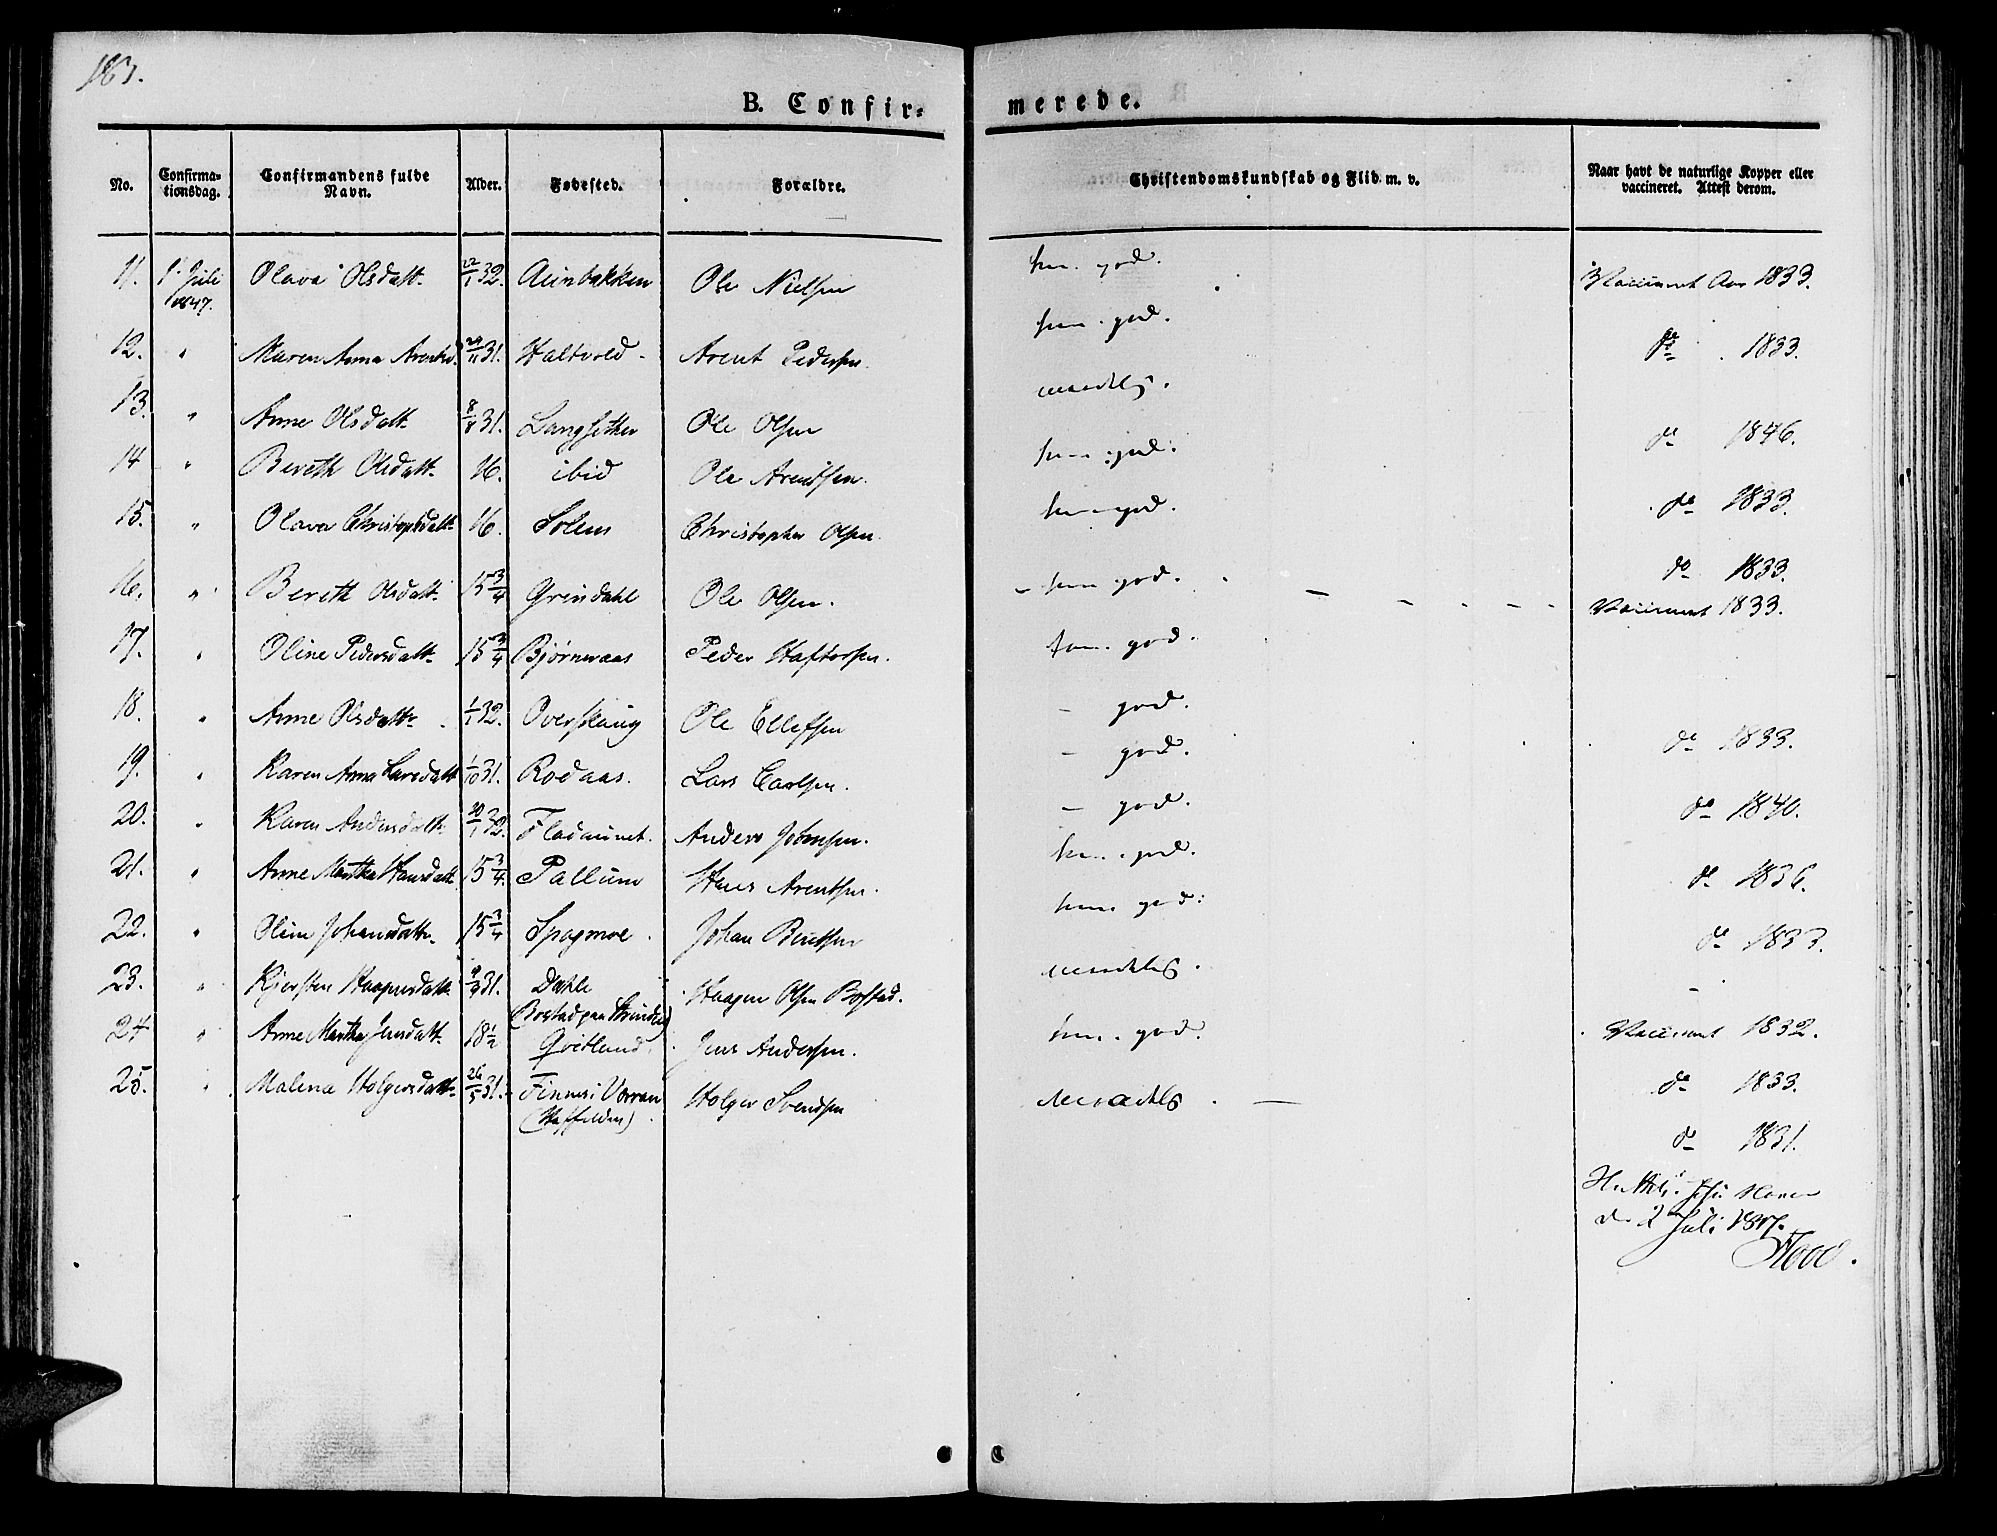 163.
B. Confir=
merede.
No.
Confirma-
tionsdag.
Confirmandens fulde
Navn.
Alder.
Fødested.
Forældre.
Christendomskundskab og Flid m. v.
Naar havt de naturlige Kopper eller
vaccineret. Attest derom.
11. 1. Juli Olava Olsdatt. 22/1 32. Aunbakken Ole Nielsen god. Aar 1833.
1847.
12. " Maren Anna 31. Haltvold Arent Pedersen god. do 1833.
13. " Anne Olsdatt. 31. Langsether Ole Olsen maadelig. do 1846.
14 " Bereth Olsdatt. 16. ibid Ole Arendtsen. god. do 1833.
15. " Olava Christophdatt. 16. Solem Christopher Olsen. god. do 1833.
16. " Bereth Olsdatt. 15 3/4 Grindahl Ole Olsen. god. Vaccineret 1833.
17. " Oline Pedersdatt. 15 3/4 Bjørneraas Peder Haftorsen. god.
18. " Anne Olsdattr. 1/1 32. Overskaug Ole Ellefsen - god. do 1833.
19. " Karen Anna Larsdatt 1/10 31. Rodaas. Lars Carlsen. - god. do 1840.
20. " Karen Andersdatt. 32. Fladaunet. Anders Johnsen. - god.
21. " Anne Martha Hansdatt. 15 3/4. Pallum Hans Arentsen. god. do 1836.
22. " Oline Johansdattr. 15 3/4 Spagmoe. Johan Bentsen god. do 1833.
23. " Kjersten Haagensdatt. 31. Dahle Haagen Olsen Bostad. maadelig. -
(Bostad paa Strinden)
24 " Anne Martha Jensdatt. 18 1/2 Qvitland. Jens Andersen. god. Vaccineret 1832.
25. " Malena Holgersdatt. 26/5 31. Finnes i Værran Holger Svendsen maadelig. - do 1833.
do 1831.
2 Juli 1847.